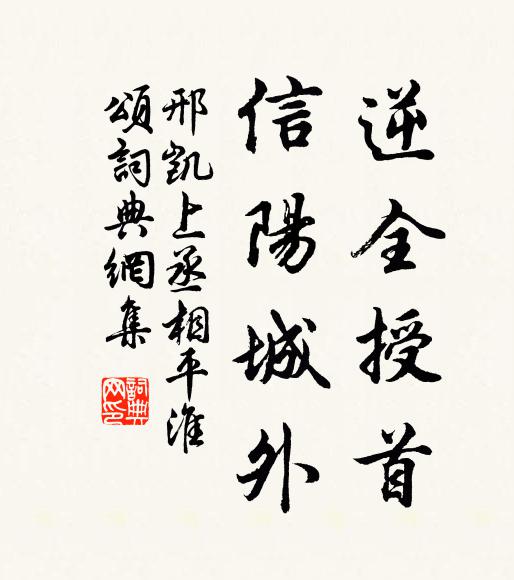 逆全授首
信陽城外
邢凱上丞相平淮
頌詞典網集
詞典網印